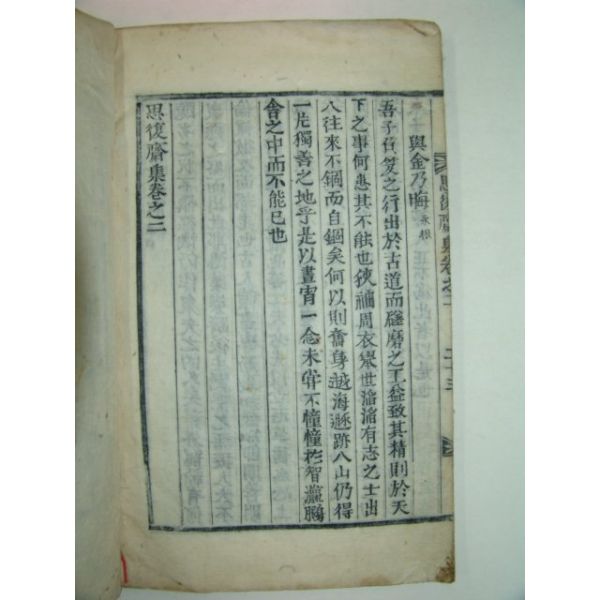 與金乃晦 永根
吾子負笈之行出於古道而礲磨之工益致其精則於天
下之事何患其不能也彼禍周衣擧世滔滔有志之士出
入往來不錮而自錮矣何以則奮身越海遯跡入山仍得
一片獨善之地乎是以晝宵一念未嘗不憧憧於智瀛鵬
舍之中而不能已也
思復齋集卷之二